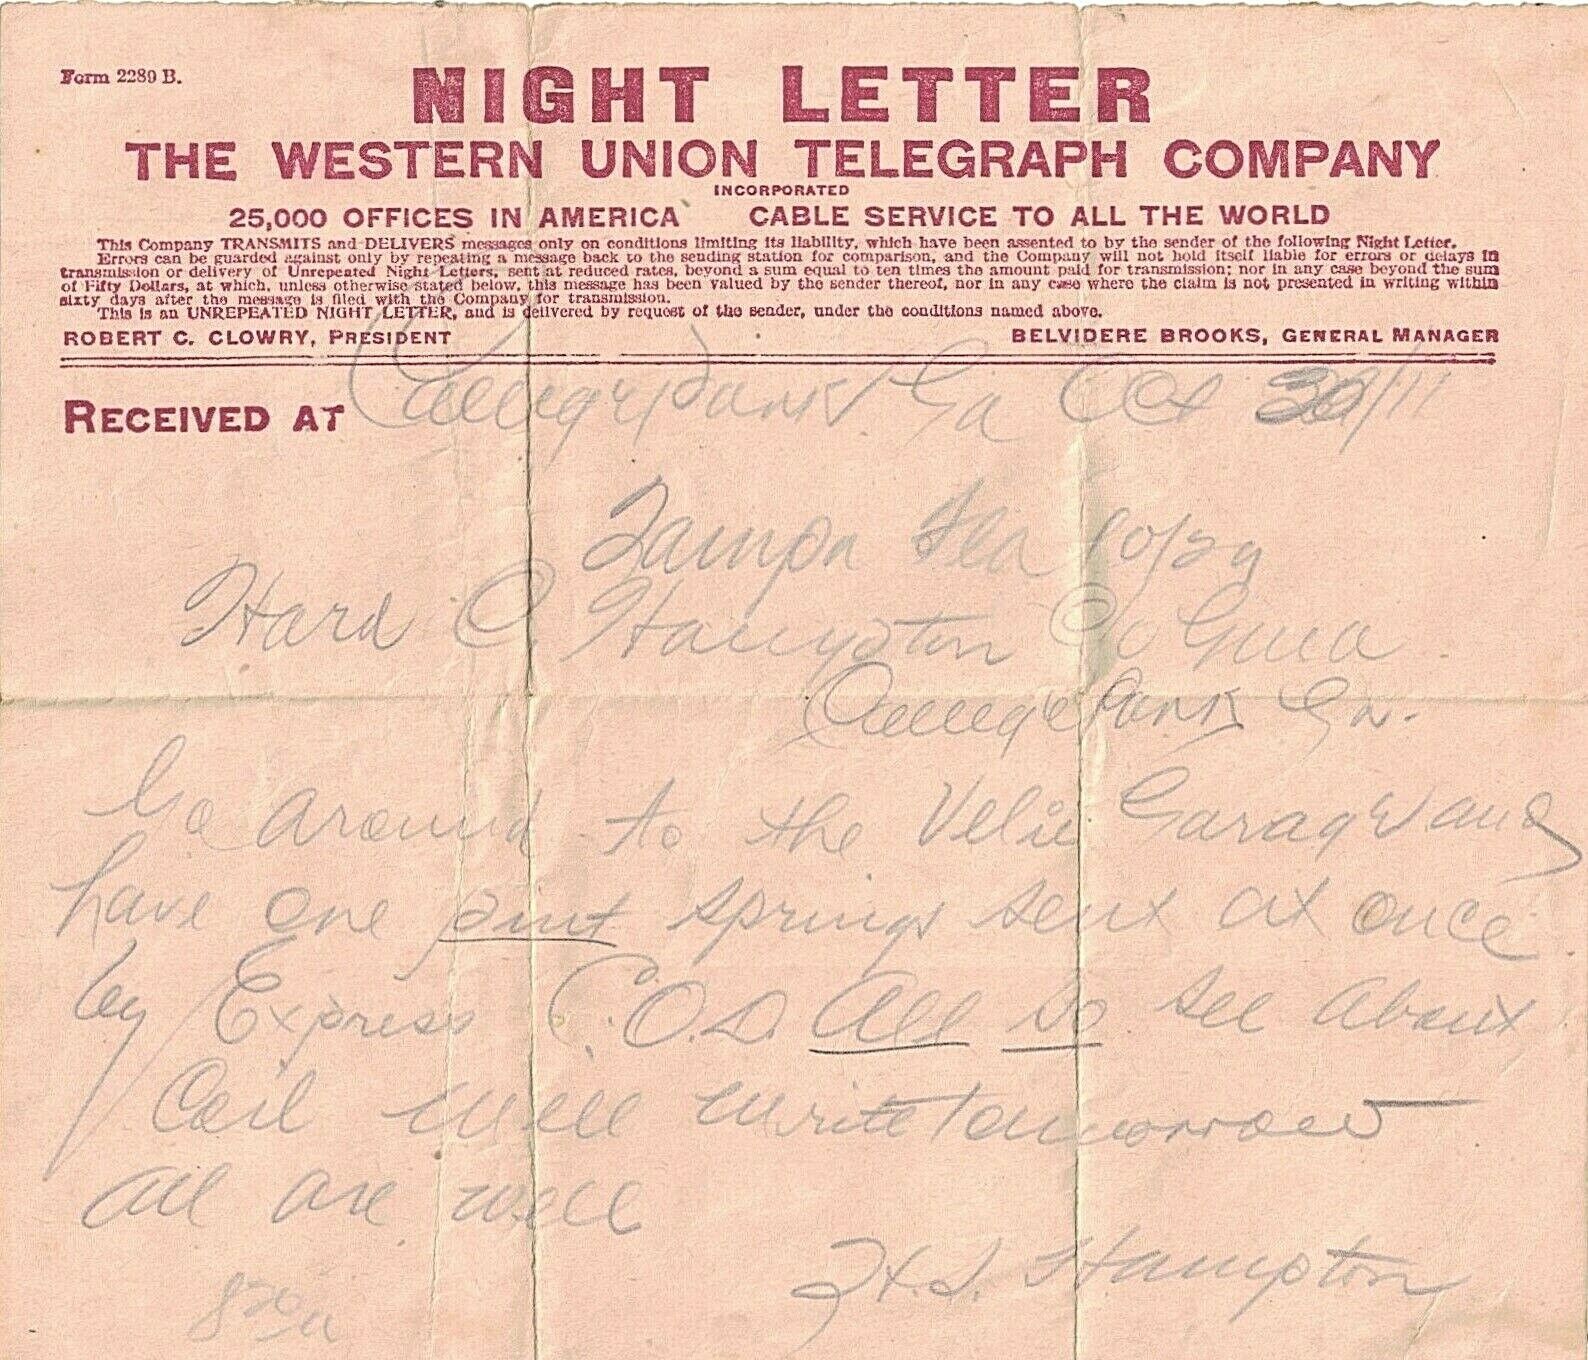 Form 2289 B.
NIGHT LETTER
THE WESTERN UNION TELEGRAPH COMPANY
INCORPORATED
25,000 OFFICES IN AMERICA CABLE SERVICE TO ALL THE WORLD
This Company TRANSMITS and DELIVERS messages only on conditions limiting its liability, which have been assented to by the sender of the following Night Letter.
Errors can be guarded against only by repeating a message back to the sending station for comparison, and the Company will not hold itself liable for errors or delays in
transmission or delivery of Unrepeated Night Letters, sent at reduced rates, beyond a sum equal to ten times the amount paid for transmission; nor in any case beyond the sum
of Fifty Dollars, at which, unless otherwise stated below, this message has been valued by the sender thereof, nor in any case where the claim is not presented in writing within
sixty days after the message is filed with the Company for transmission.
This is an UNREPEATED NIGHT LETTER, and is delivered by request of the sender, under the conditions named above.
ROBERT C. CLOWRY, PRESIDENT BELVIDERE BROOKS, GENERAL MANAGER
RECEIVED AT College Park Ga Oct 30/11
Tampa Fla 10/29
Hard C, Hampton Co
College Park Ga.
Go around to the Velie Garage and
have one pint springs sent at once
by Express C.O.D. All So see about
Coil will write tomorrow
all are well
H.S. Hampton